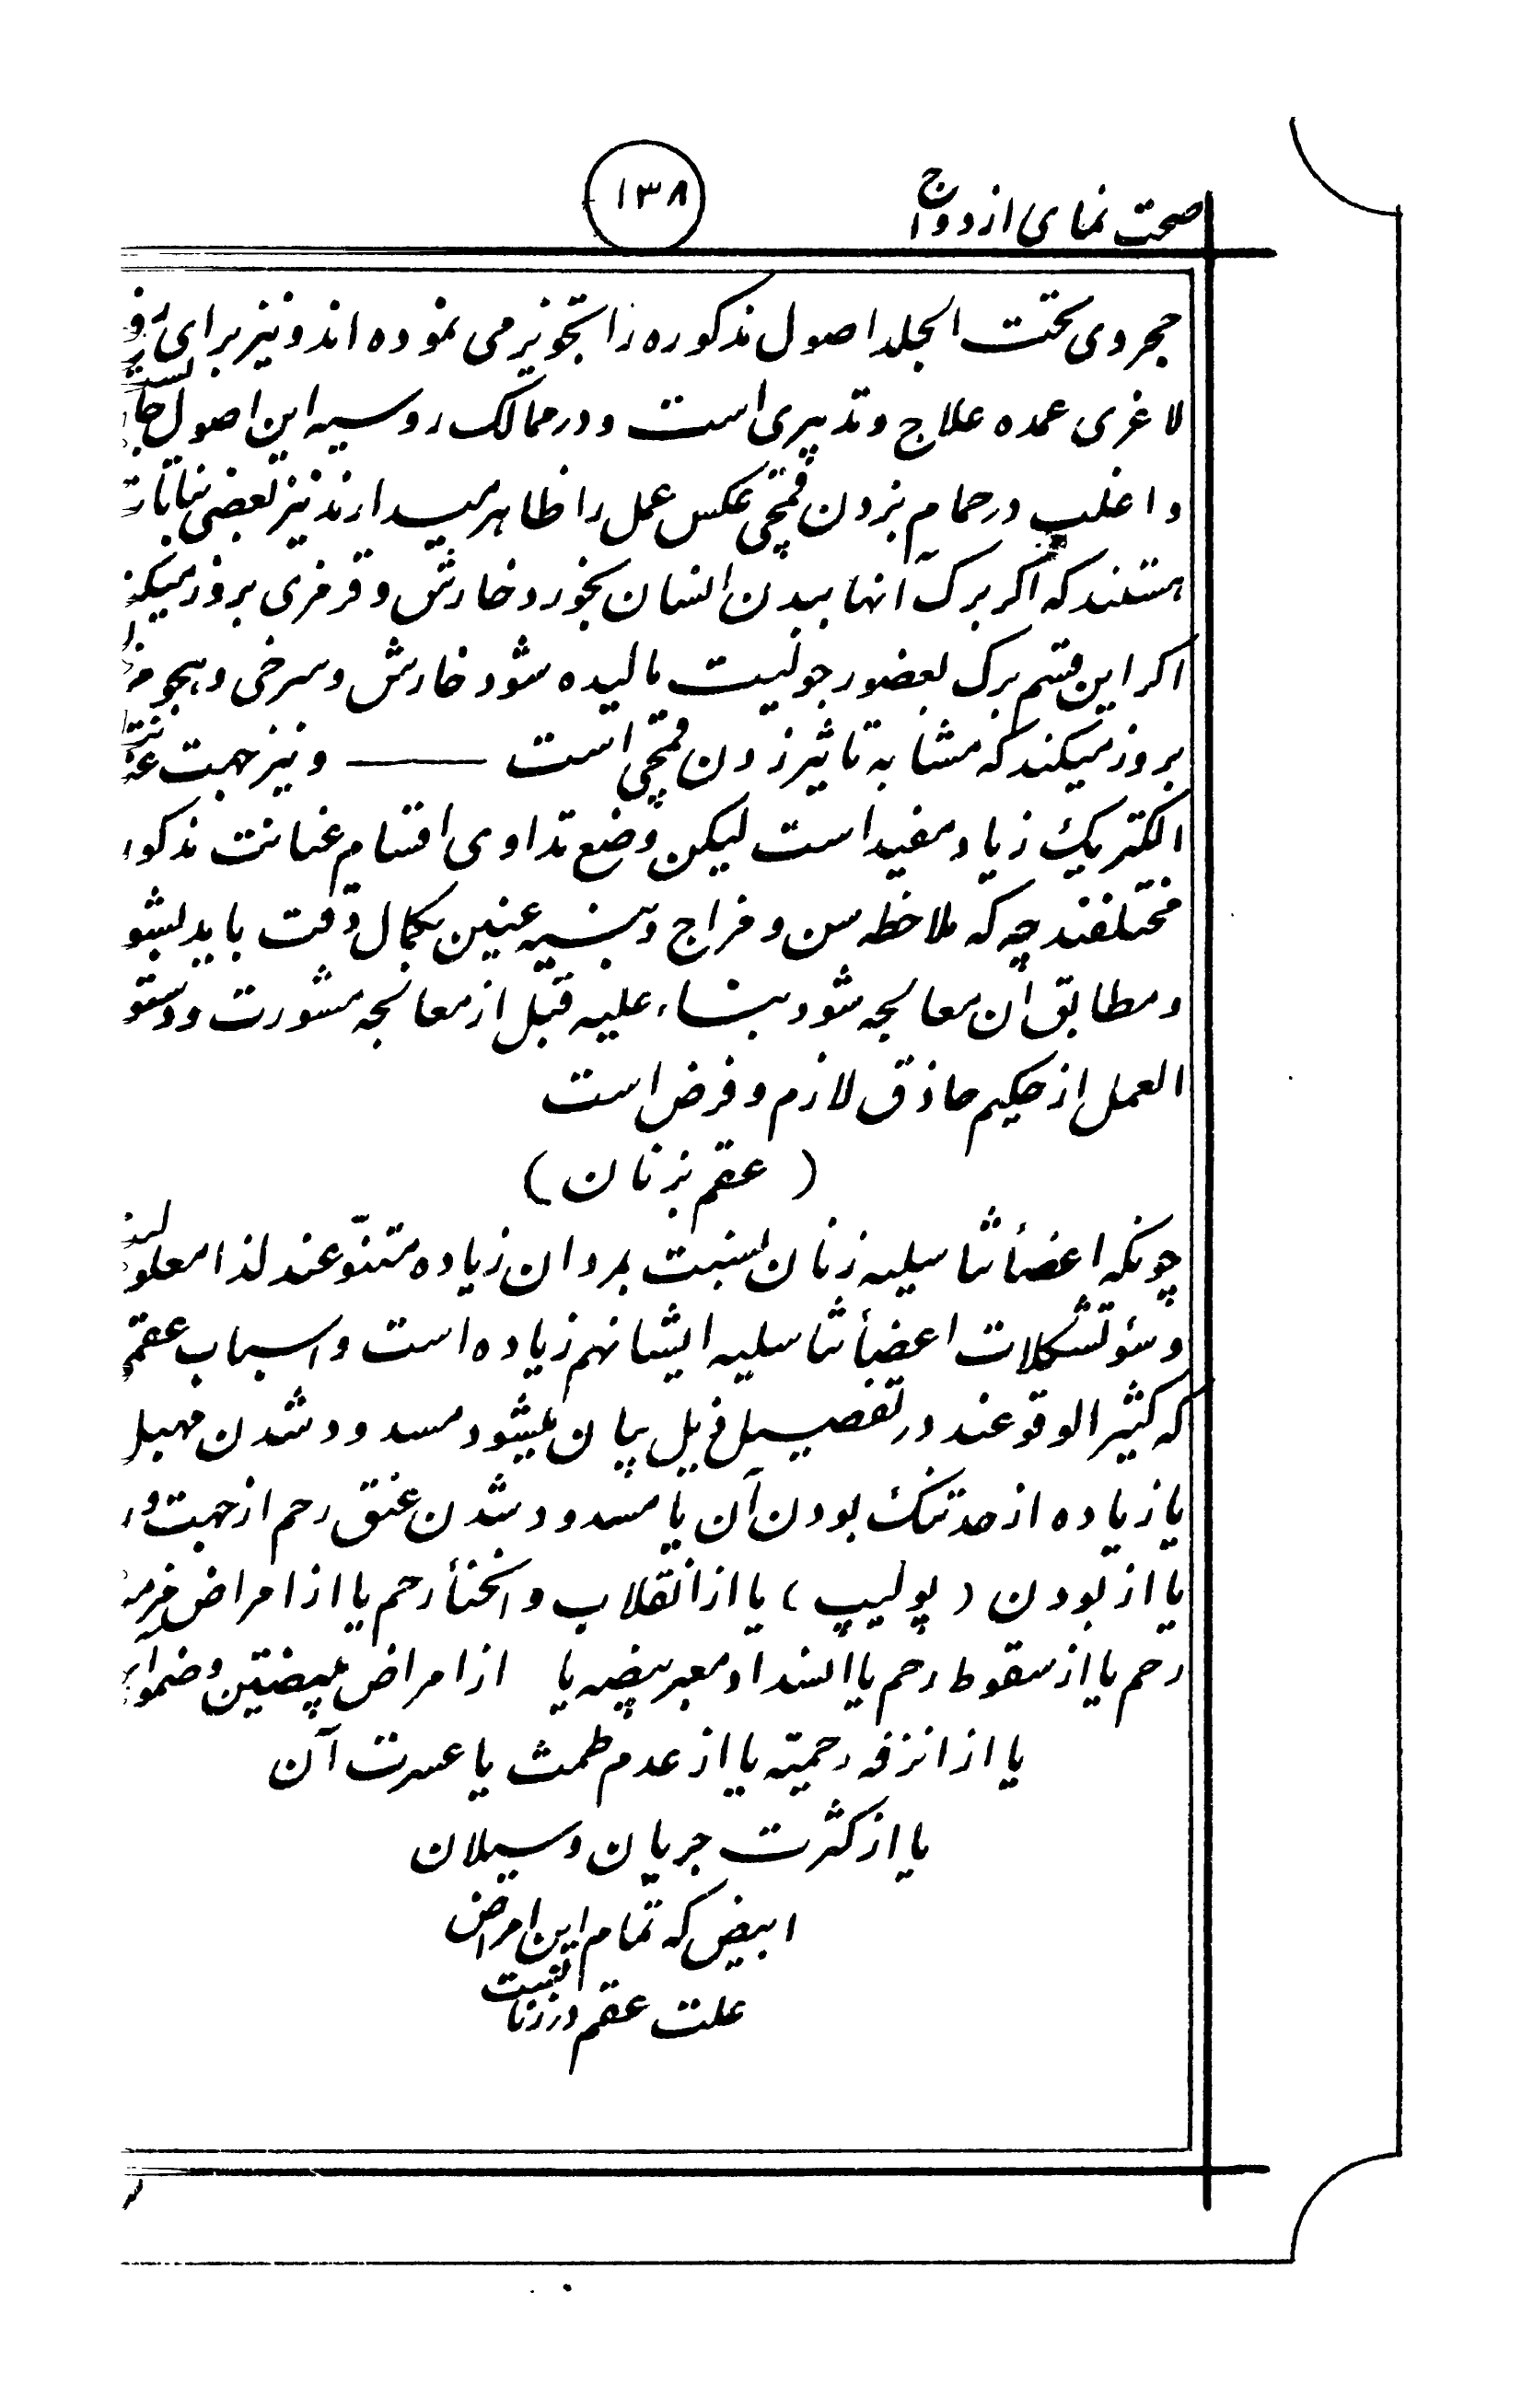 صحت نمای ازدواج
۱۳۸
حجروی تحت الجلد اصول مذکوره را تجویز می نموده اند و نیز برای
لاغری عمده علاج و تدبیری است و در ممالک روسیه این اصول
و اغلب در حمام بزدن قمچی عکس عمل را ظاهر میسدارند نیز بعضی نباتات
هستند که اکر برک آنها ببدن انسان بخورد خارش و قرمزی بروز میکند
اکر این قسم برک بعضو رجولیت مالیده شود خارش و سرخی و هجوم
بروز میکند که مشابه تاثیر زدن قمچی است ـــــ و نیز جهت
الکتریک زیاد مفید است لیکن وضع تداوی اقسام عنانت مذکور
مختلفند چه که ملاخظه سن و مزاج و بنیه عنین بکمال دقت باید بشو
و مطابق آن معالجه شود بناء علیه قبل از معالجه مشورت و دستو
العمل از حکیم حاذق لازم و فرض است
( عقم زنان )
چونکه اعضأ تناسلیه زنان بنسبت بمردان زیاده متنوّعند لذا
و سؤتشکلات اعضأ تناسلیه ایشانهم زیاده است و اسباب عقم
که کثیر الوقوعند در تفصیل ذیل بیان میشود مسدود شدن مهبل
یا زیاده از حد تنک بودن آن یا مسدود شدن عنق رحم از جهت
یا از بودن ( پولیپ ) یا از انقلاب و انخنأ رحم یا از امراض
رحم یا از سقوط رحم یا انسداد معبر بیضه یا از امراض بیضتین و
یا از انزفه رحمیّه یا از عدم طمث یا عسرت آن
یا از کثرت جریان و سیلان
ابیض که تمام این امراض
علت عقم در زنانست